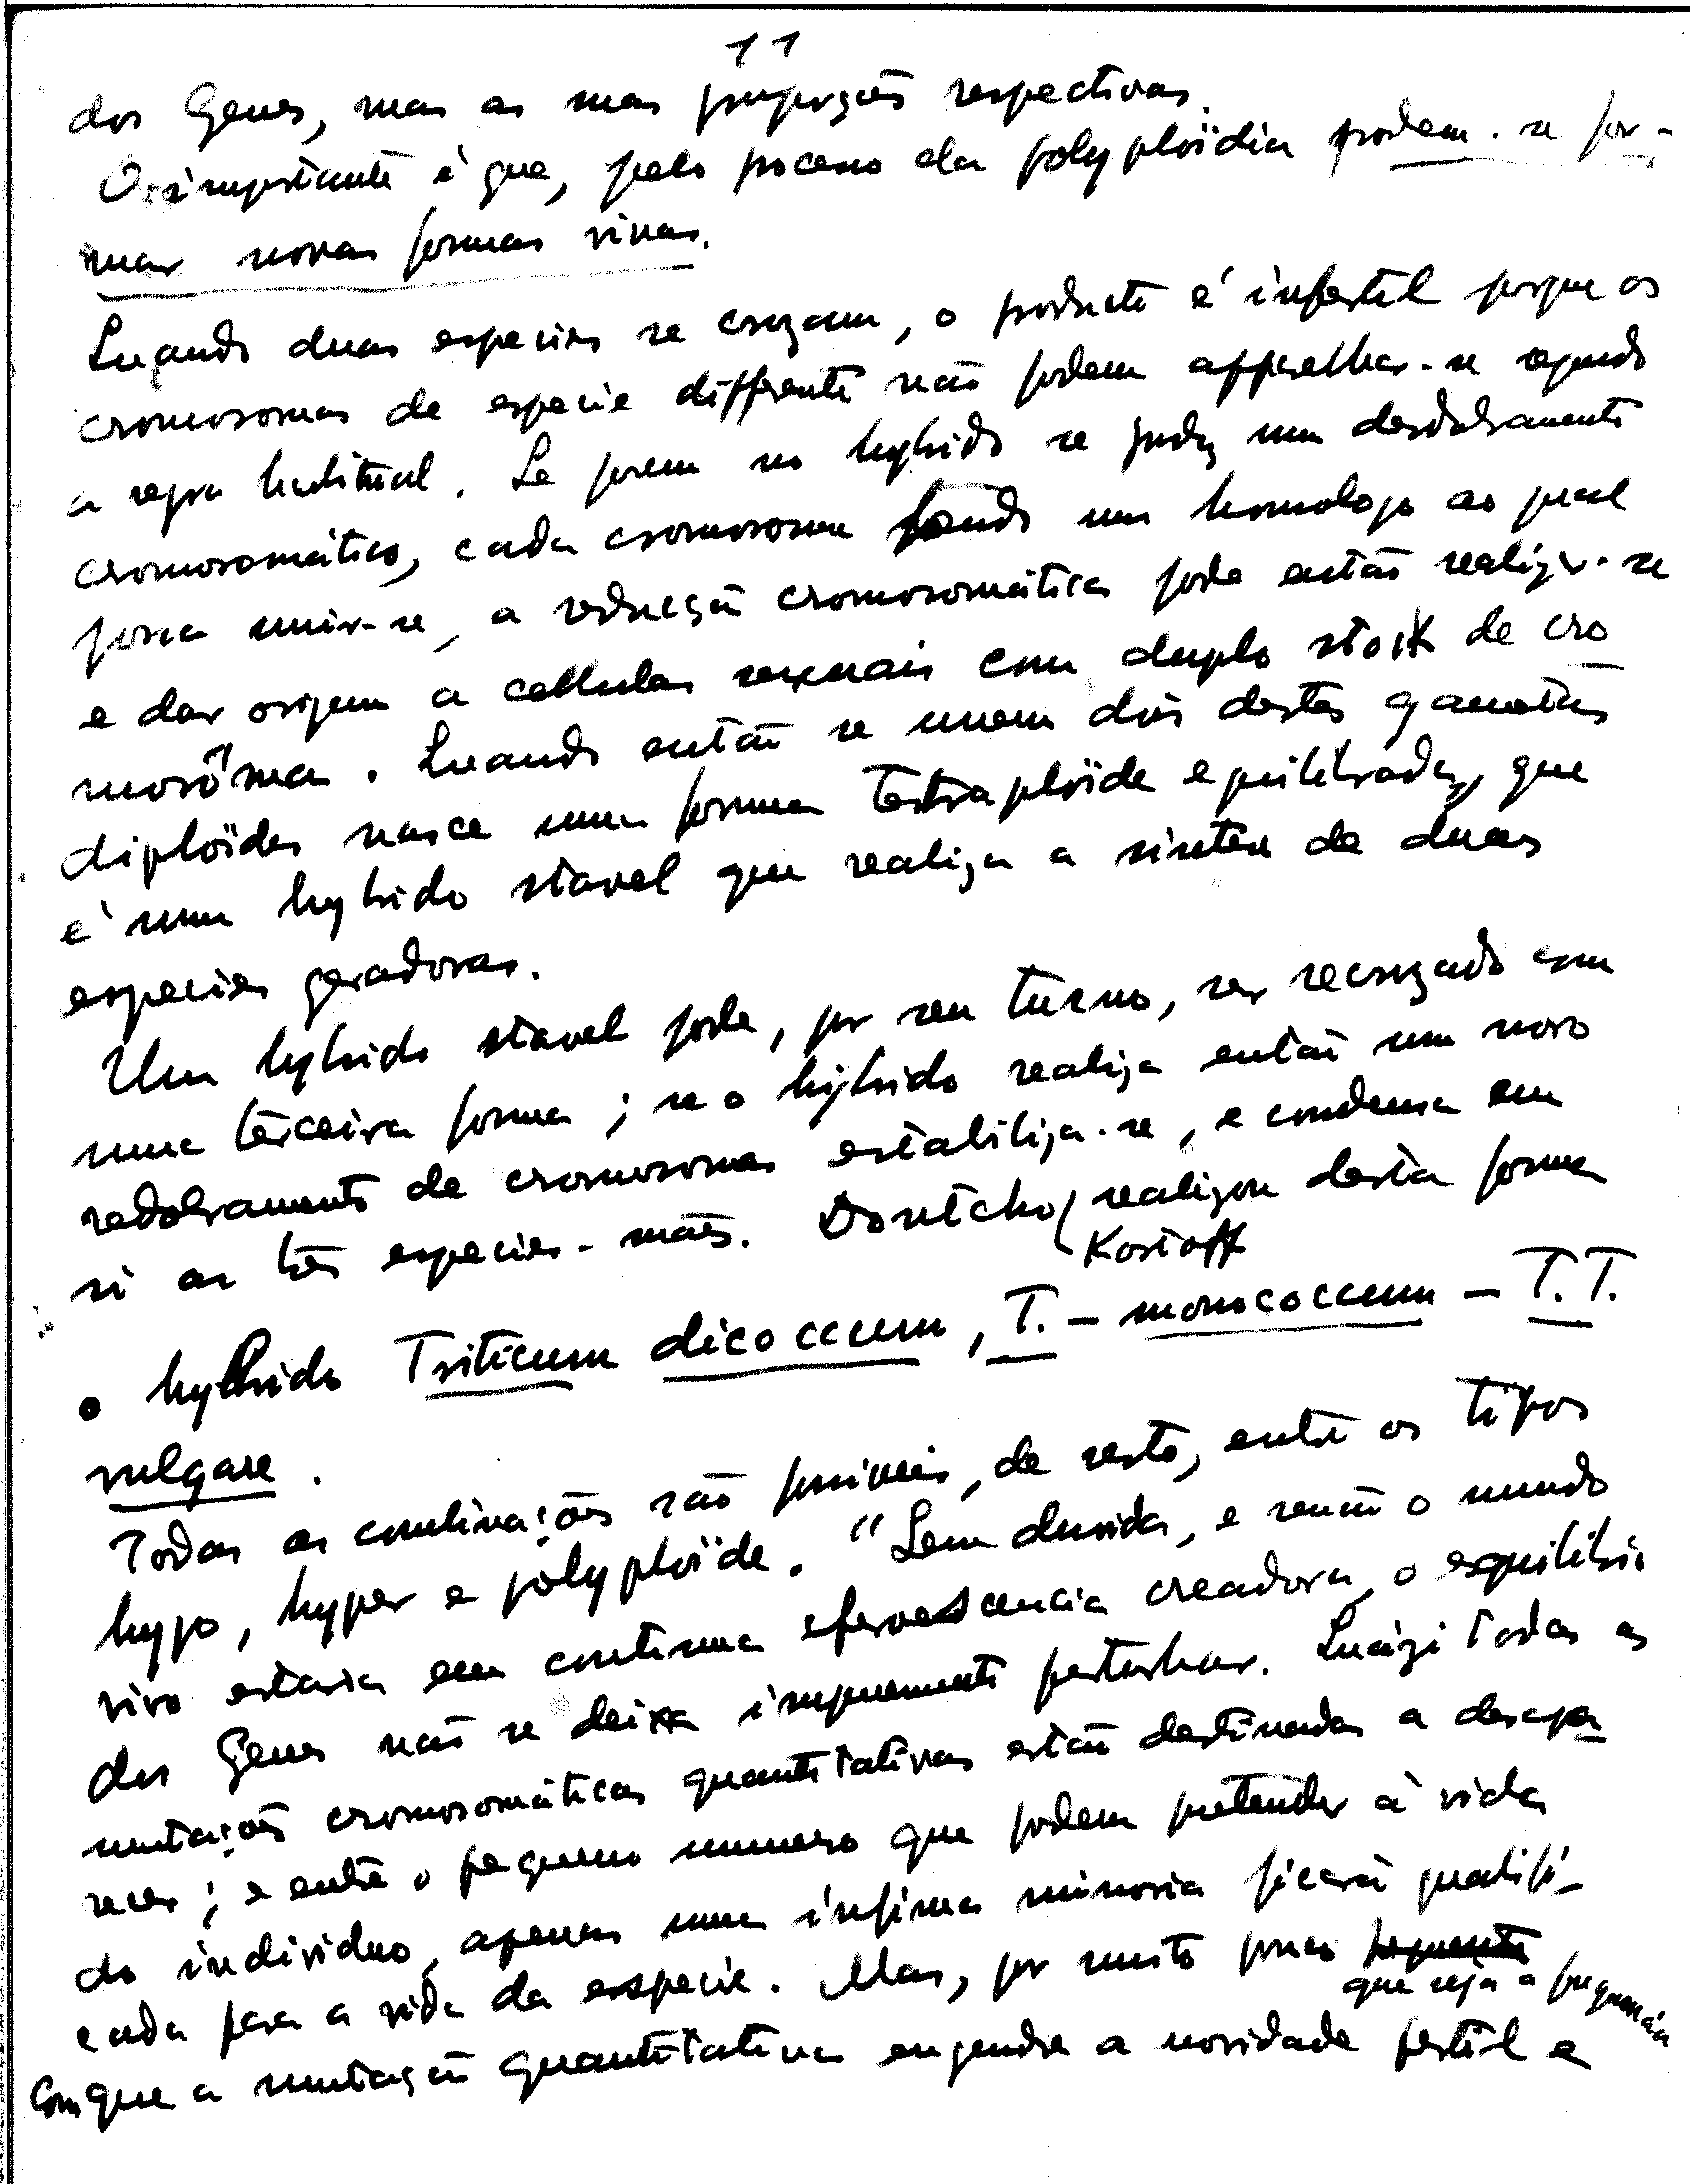 11
dos Genes, mas as suas proporções respectivas.
O importante é que, pelo processo da polyploïdia podem-se for-
mar novas formas vivas.
Quando duas especies se cruzam, o producto é infertil porque os
cromosomas de especie differente não podem apparelhar-se segundo
a regra habitual. Se porem no hybrido se produz um desdobramento
cromosomático, cada cromosoma tendo um homologo ao qual
possa unir-se, a reducção cromosomática pode então realizar-se
e dar origem a cellulas sexuais com duplo stock de cro
mosômas. Quando então se unem dois destes gametas
diploïdes nasce uma forma tetraploïde equilibrada, que
é um hybrido stavel que realiza a sintese de duas
especies geradoras.
Um hybrido stavel pode, por seu turno, ser recruzado com
uma terceira forma; se o hybrido realiza então um novo
redobramento de cromosomas estabiliza-se, e condensa em
si as três especies-mães. Dontcho realizou desta forma
Kostoff
o hybrido Triticum dicoccum, T. - monococcum - T.T.
vulgare.
Todas as combinações são possiveis, de resto, entre os tipos
hypo, hyper e polyploïde. "Sem duvida, e senão o mundo
vivo estaria em continua efervescencia creadora, o equilibrio
dos Genes não se deixa impunemente perturbar. Quázi todas as
mutações cromosomáticas quantitativas estão destinadas a desapa
recer; e entre o pequeno numero que podem pretender à vida
do individuo, apenas uma infima minoria ficará qualifi-
cada para a vida da especie. Mas, por muito pouco
que seja a frequencia
com que a mutação quantitativa engendre a novidade fertil e